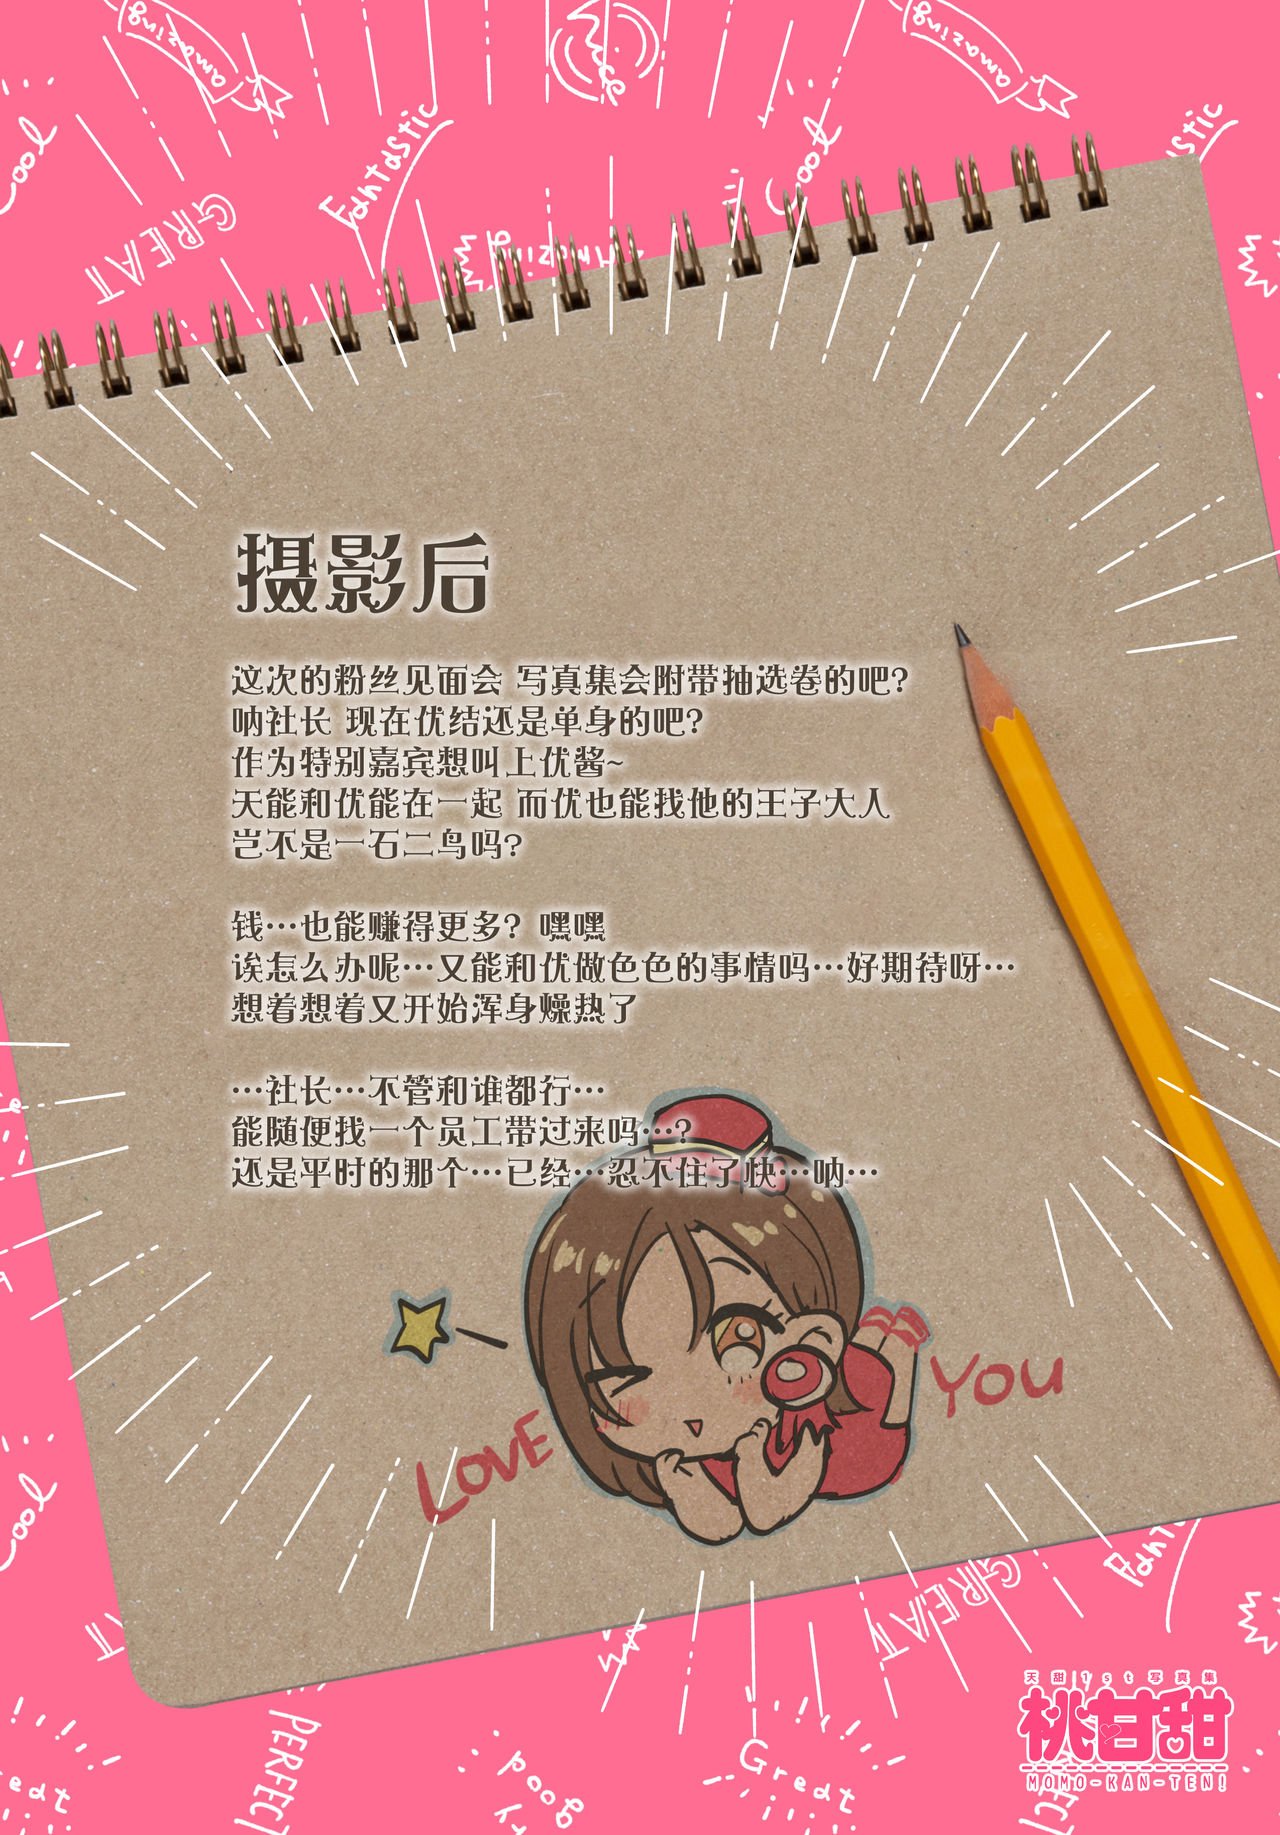 amazing
Nice
amazing
Cool
Fantastic
Cool
GREAT
Amazing
摄影后
这次的粉丝见面会 写真集会附带抽选卷的吧?
呐社长 现在优结还是单身的吧?
作为特别嘉宾想叫上优酱~
天能和优能在一起 而优也能找他的王子大人
岂不是一石二鸟吗?
钱…也能赚得更多? 嘿嘿
诶怎么办呢…又能和优做色色的事情吗…好期待呀…
想着想着又开始浑身燥热了
…社长…不管和谁都行…
能随便找一个员工带过来吗…?
还是平时的那个…已经…忍不住了快…呐…
LOVE
YOU
Cool
GREAT
天甜1st写真集
桃甘甜
MOMO-KAN-TEN!
PERFECT
Great
good